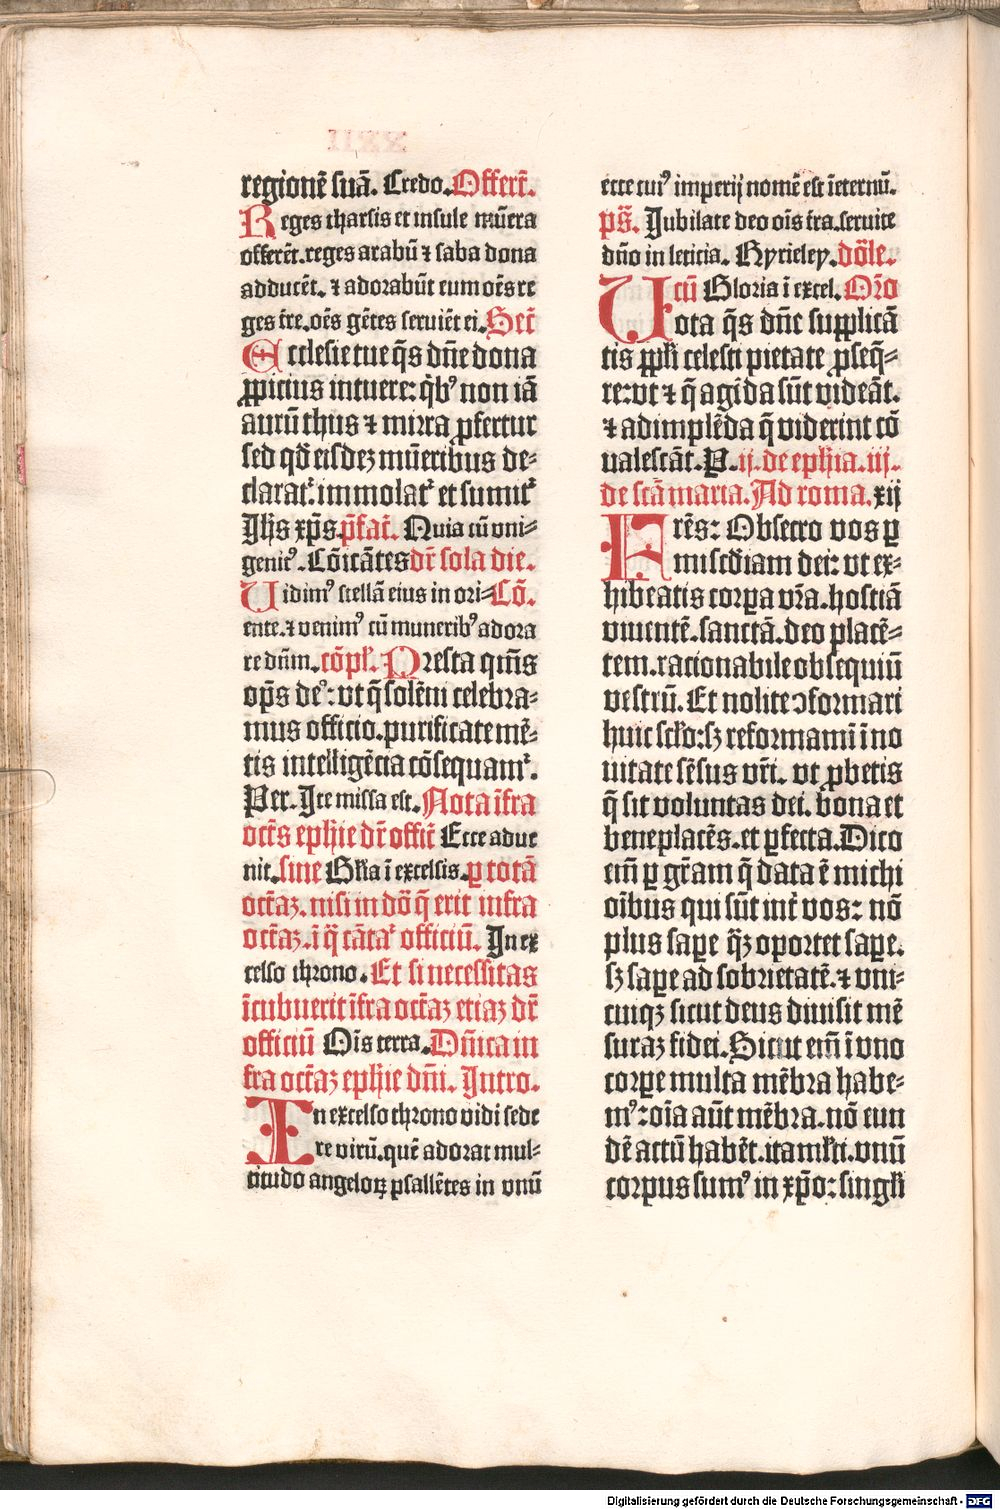 regionē suā. Credo. Offerт̄.
Reges tharsis et insule mūera
offerēt. reges arabū ⁊ saba dona
adducēt. ⁊ adorabūt eum oēs re
ges t̄re. oēs gētes seruiēt ei. Sect̄
Ecclesie tue q̄s dn̄e dona
ꝓpicius intuere: qͥbꝰ non iā
aurū thus ⁊ mirra ꝓfertur
sed qd̄ eisdeꝫ mūeribus de-
claratᷣ. immolatᷣ et sumitᷣ
Jh̄s xp̄s. p̄fat̄. Quia cū vni-
genitꝰ. Cōicātes dr̄ sola die.
Uidimꝰ stellā eius in ori- Cō.
ente. ⁊ venimꝰ cū muneribꝰ adora
re dn̄m. cōpl̄. Presta qm̄s
op̄s deꝰ: vt q̄ solēni celebra-
mus officio. purificate mē-
tis intelligētia cōsequamᷣ.
Per. Ite missa est. Nota īfra
oct̄s ephie dr̄ offic̄ Ecce adue
nit. sine Gl̄ia ī excelsis. ꝑ totā
oct̄aꝫ. nisi in dō q̄ erit infra
oct̄aꝫ. ī q̄ cātatᷣ officiū. In ex
celso throno. Et si necessitas
īcubuerit īfra oct̄aꝫ etiaꝫ dr̄
officiū Oīs terra. Dn̄ica in
fra oct̄aꝫ ephie dn̄i. Intro.
In excelso throno vidi sede
re virū. quē adorat mul-
titudo angeloꝝ psallētes in vnū
ecce cuiꝰ imperij nomē est īeternū.
ps̄. Jubilate deo oīs t̄ra. seruite
dn̄o in leticia. Kyrieley. dōle.
cū Gloria ī excel. Or̄o
Uota q̄s dn̄e supplicā
tis ppl̄i celesti pietate ꝓseq̄-
re: vt ⁊ q̄ agēda sūt videāt.
⁊ adimplēda q̄ viderint cō
ualescāt. P. ij. de ephia. iij.
de scā maria. Ad roma. xij
Fres̄: Obsecro vos ꝑ
misc̄diam dei: vt ex-
hibeatis corꝑa vr̄a. hostiā
viuentē. sanctā. deo placē-
tem. racionabile obsequiū
vestrū. Et nolite ꝯformari
huic sc̄lo: sꝫ reformami ī no
uitate sēsus vr̄i. vt ꝓbetis
q̄ sit voluntas dei. bona et
beneplacēs. et ꝑfecta. Dico
em̄ ꝑ gr̄am q̄ data ē michi
oībus qui sūt int̄ vos: nō
plus saꝑe q̄ꝫ oportet saꝑe.
sꝫ saꝑe ad sobrietatē. ⁊ vni-
cuiqꝫ sicut deus diuisit mē
suraꝫ fidei. Sicut em̄ ī vno
corꝑe multa mēbra habe-
mꝰ: oīa aūt mēbra. nō eun
dē actū habēt. ita ml̄ti. vnū
corpus sumꝰ in xp̄o: singl̄i
Digitalisierung gefördert durch die Deutsche Forschungsgemeinschaft - DFG